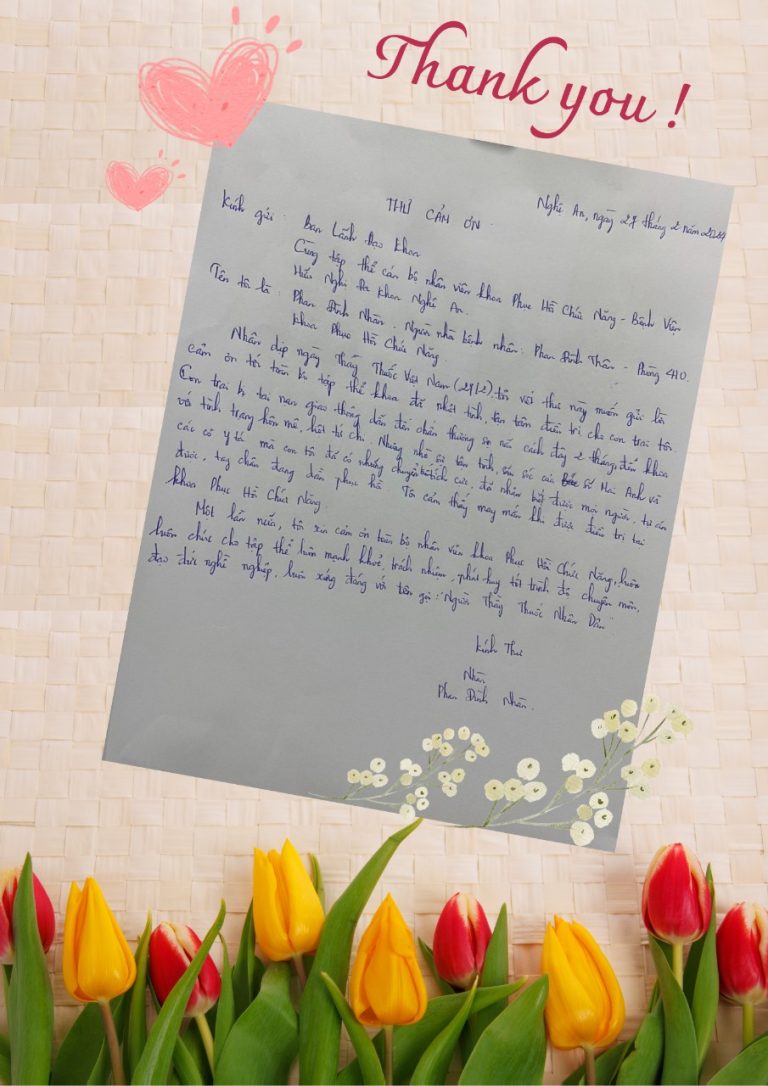 Thank you !
Nghệ An, ngày 27 tháng 2 năm 2024
THƯ CẢM ƠN
Kính gửi : Ban Lãnh đạo khoa
Cùng tập thể cán bộ nhân viên khoa Phục Hồ Chức Năng - Bệnh Viện
Hữu Nghị Đa khoa Nghệ An.
Tên tôi là : Phan Đình Nhân . Người nhà bệnh nhân : Phan Đình Thân - Phòng 410.
khoa Phục Hồ Chức Năng
Nhân dịp ngày Thầy Thuốc Việt Nam (27/2), tôi viết thư này muốn gửi lời
cảm ơn tới toàn bộ tập thể khoa đã nhiệt tình, tận tâm điều trị cho con trai tôi.
Con trai bị tai nạn giao thông dẫn đến chấn thương sọ não cách đây 2 tháng, đến khoa
với tình trạng hôn mê, liệt tứ chi. Nhưng nhờ sự tận tình, săn sóc của Bác sĩ Mai Anh và
các cô y tá mà con tôi đã có những chuyển tích cực, đã nhận biết được mọi người, tự ăn
được, tay chân đang dần phục hồ. Tôi cảm thấy may mắn khi được điều trị tại
khoa Phục Hồ Chức Năng
Một lần nữa, tôi xin cảm ơn toàn bộ nhân viên khoa Phục Hồ Chức Năng, luôn
luôn chúc cho tập thể luôn mạnh khoẻ, trách nhiệm, phát huy tốt trình độ chuyên môn,
đạo đức nghề nghiệp, luôn xứng đáng với tên gọi : "Người Thầy Thuốc Nhân Dân"
Kính Thư
Nhân
Phan Đình Nhân.